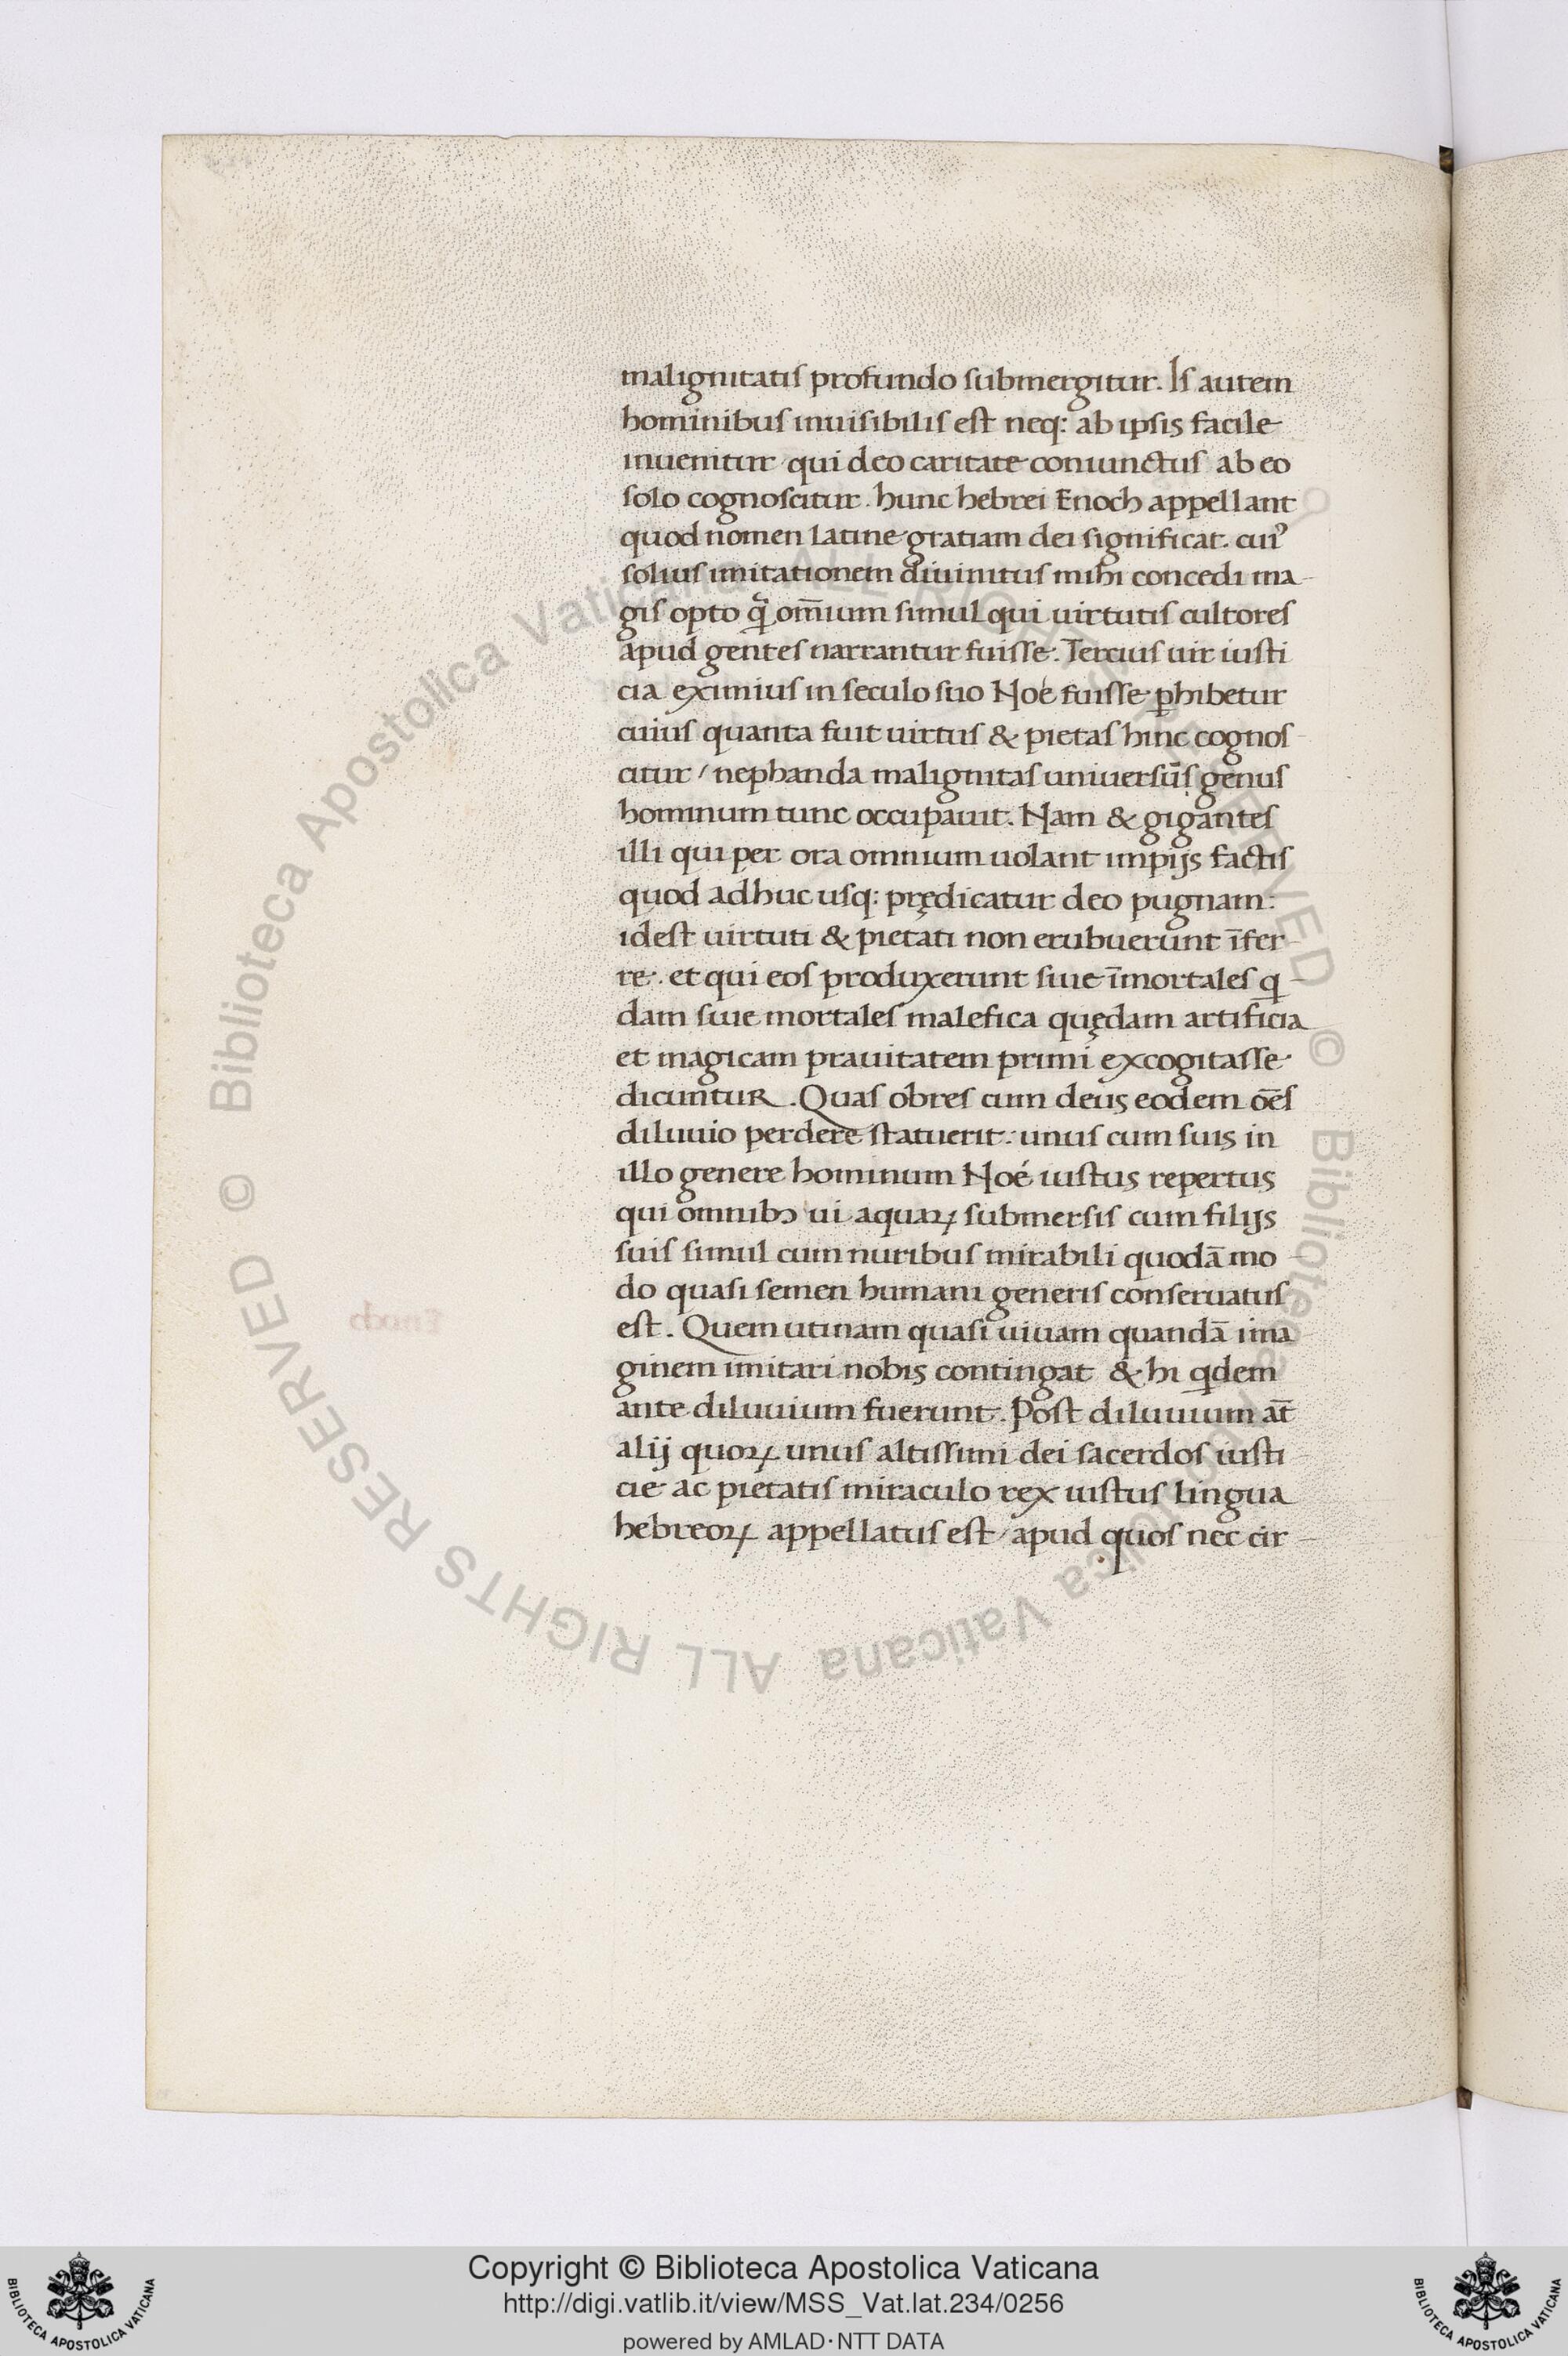 malignitatis profundo submergitur. Is autem
hominibus inuisibilis est neq: ab ipsis facile
inuenitur qui deo caritate coniunctus ab eo
solo cognoscitur. hunc hebrei Enoch appellant
quod nomen latine gratiam dei significat. cuiꝰ
solius imitationem diuinitus mihi concedi ma-
gis opto ꝙ̃ om̄ium simul qui uirtutis cultores
apud gentes narrantur fuisse. Tercius uir iusti
cia eximius in seculo suo Noé fuisse ꝑhibetur
cuius quanta fuit uirtus & pietas hinc cognos-
citur / nephanda malignitas uniuersū genus
hominum tunc occupauit. Nam & gigantes
illi qui per ora omnium uolant impijs factis
quod adhuc usq: prędicatur deo pugnam:
idest uirtuti & pietati non erubuerunt īfer-
re. et qui eos produxerunt siue īmortales q-
dam siue mortales malefica quędam artificia
et magicam prauitatem primi excogitasse
dicuntur. Quas obres cum deus eodem oēs
diluuio perdere statuerit: unus cum suis in
illo genere hominum Noé iustus repertus
qui omnibꝫ ui aquaꝝ submersis cum filijs
suis simul cum nuribus mirabili quodā mo-
do quasi semen humani generis conseruatus
est. Quem utinam quasi uiuam quandā ima
ginem imitari nobis contingat & hi qdem
ante diluuium fuerunt. Post diluuium aūt
alij quoꝝ unus altissimi dei sacerdos iusti-
cie ac pietatis miraculo rex iustus lingua
hebreoꝝ appellatus est / apud quos nec cir-
© Biblioteca Apostolica Vaticana ALL RIGHTS RESERVED © Biblioteca Apostolica Vaticana ALL RIGHTS RESERVED
Copyright © Biblioteca Apostolica Vaticana
http://digi.vatlib.it/view/MSS_Vat.lat.234/0256
powered by AMLAD·NTT DATA
BIBLIOTECA APOSTOLICA VATICANA
BIBLIOTECA APOSTOLICA VATICANA